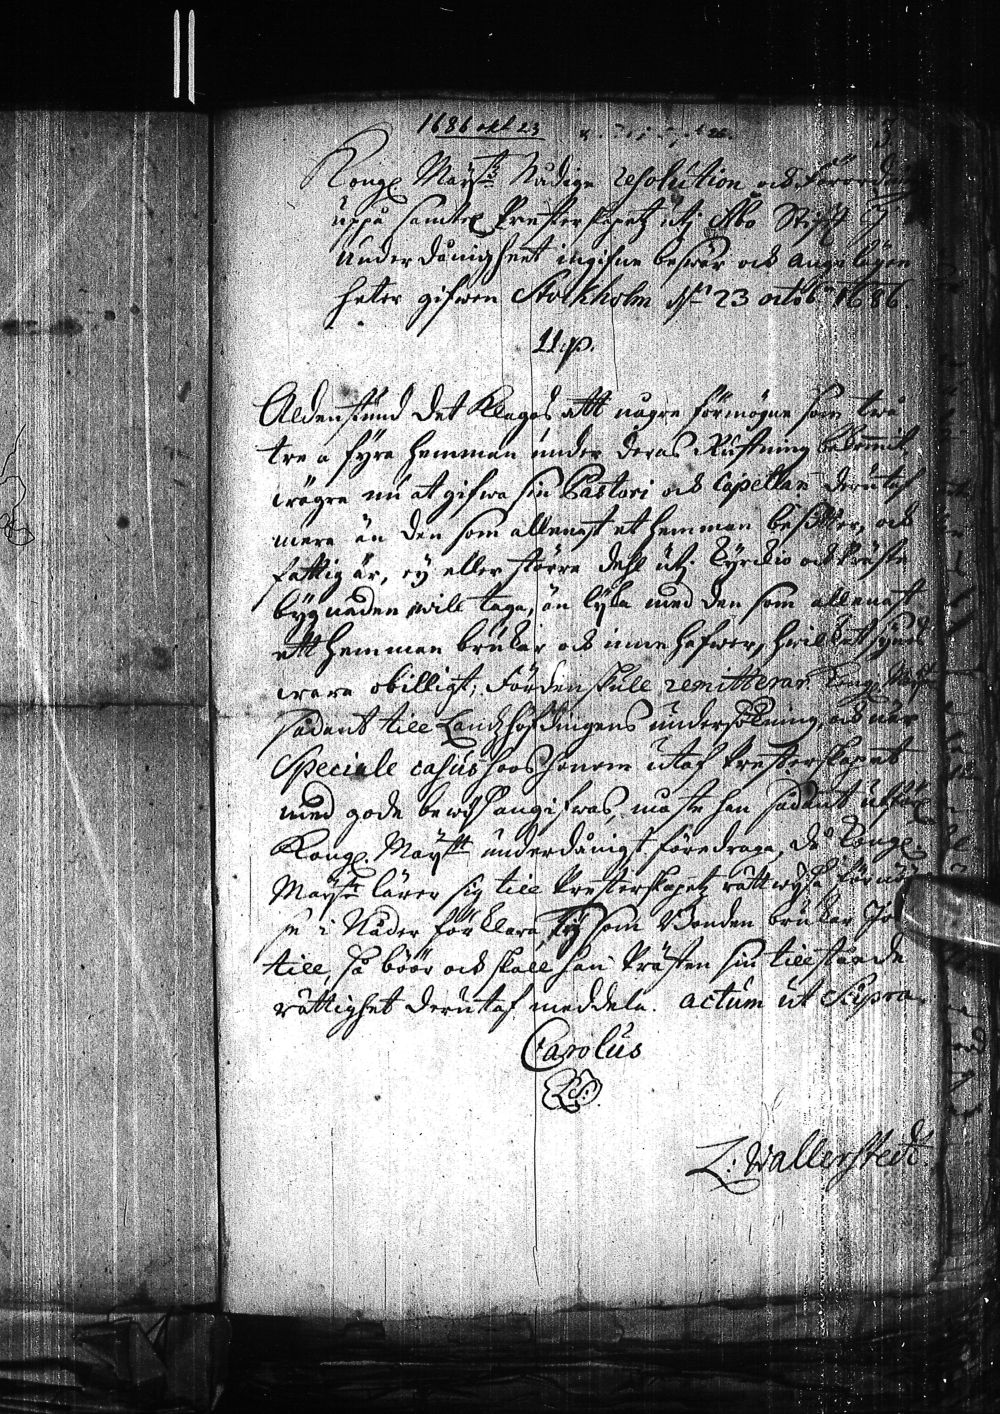 1686 okt 23
Kongl. Maytz Nådige resolution och Förord
uppå samtel. Presterskapetz utj Åbo Stifft
Underdånigheet ingifne beswär och angelägen
heter gifwen Stockholm d. 23 octobr 1686
11. p.
Aldenstund det klagas att någre förmögne som twå
tre a fyra hemman under deras Rustning
wägra nu at gifwa sin Pastori och Capellan derutaf
mera än den som allenast et hemman besitter, och
fattig är, ey eller större dehl utj Kyrckio och Präste
bygnaden wile taga, än lijka med den som allenast
ett hemman brukar och innehafwer, hwilket synes
wara obilligt; Fördenskull remitterar Kongl. Maytt
sådant till Landzhöfdingens undersökning, och när
Speciale casus hoos honom utaf Presterskapet
med gode bewijs angifwas, måste han sådant
Kongl. Maytt underdånigst föredraga, då Kongl.
Maytt lärer sig till Presterskapetz rättwijsa
se i Nåder förklara, ty som Bonden brukar Jord
till, så böör och skall han Prästen sin tillstående
rättighet derutaf meddela. actum ut supra.
Carolus
LS.
Z: Wallerstedt.